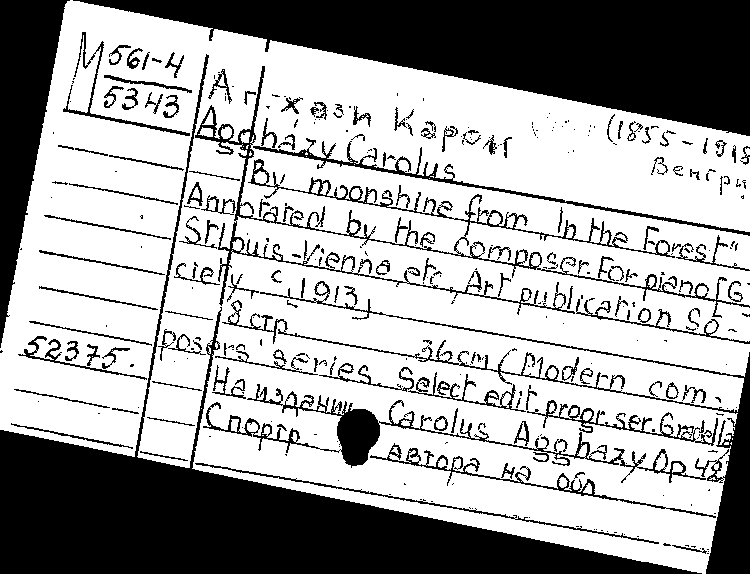 М 561-4
5343
Агхази Карой (1855-1918
Венгри
Aggházy, Carolus
By moonshine from „In the Forest".
Annotated by the composer. For piano [G
St. Louis-Vienna, etc., Art publication So-
ciety, c. [1913].
8 стр. 36 см (Modern com-
52375. posers' series. Select. edit. progr. ser. Gradella
На издании Carolus Aggházy Op. 48
С портр. автора на обл.